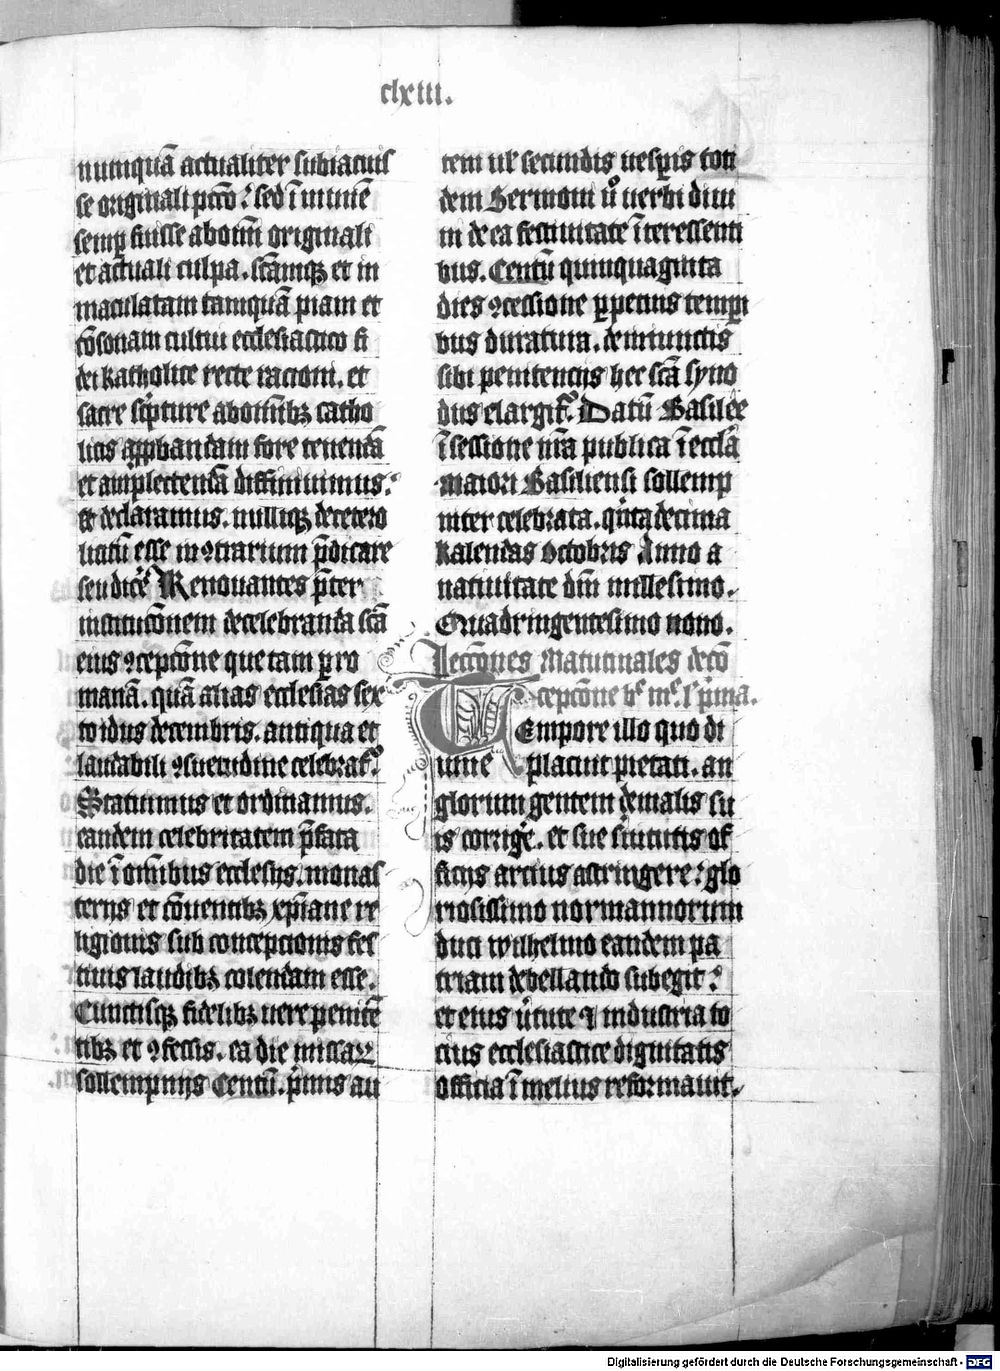 clxiii.
numquā actualiter subiacuis
se originali pccō? sed ī munē
semp̱ fuisse ab om̄i originali
et actuali culpa. sc̄amqꝫ et in
maculatam tamquā piam et
cōsonam cultui ecclesiastico fi
dei katholice recte racioni. et
sacre sc̓pture ab om̄ibꝫ catho
licis app̱bandam fore tenendā
et amplectendā diffinimus?
et declaramus. nulliqꝫ de cetero
licitū esse in ꝯtrarium p̄dicare
seu dicē Renouantes p̄ter
institucōnem de celebranda scā
eius ꝯcepcōne que tam ꝑ ro
manā. quā alias ecclesias sex
to idus decembris. antiqua et
laudabili ꝯsuetudine celebrat̄?
Statuimus et ordinamus.
eandem celebritatem p̄fata
die ī om̄ibus ecclesijs. monas
terijs et cōuentibꝫ xp̄iane re
ligionis sub concepcionis fes
tiuis laudibꝫ colendam esse.
Cunctisqꝫ fidelibꝫ vere penitē
tibꝫ et ꝯfessis. ea die missaꝝ
sollempnijs Centū. p̓mis au
tem ul̓ secundis uesp̱is toti
dem Sermoni ū̓ uerbi diui
ni de ea festiuitate īteressenti
bus. Centū quinquaginta
dies ꝯcessione ꝑpetuis temp̱i
bus duratura. de iniunctis
sibi penitencijs hec scā syno
dus elargit̓. Datū Basilee
ī sessione nr̄a publica ī eccl̄a
maiori Basiliensi sollemp
niter celebrata. qīnta decima
kalendas octobris Anno a
natiuitate dn̄i millesimo.
Quadringentesimo nono.
Lecc̄ones Matutinales de cō
cepcōne b̄e m̄e. l̓ p̓ma.
Tempore illo quo di
uine placuit pietati. an
glorum gentem de malis su
is corrigē. et sue s̓uitutis of
ficijs arcius astringere? glo
riosissimo normannorum
duci wilhelmo eandem pa
triam debellando subegit?
et eius ūtute ⁊ industria to
cius ecclesiastice dignitatis
officia ī melius reformauit.
Digitalisierung gefördert durch die Deutsche Forschungsgemeinschaft - DFG